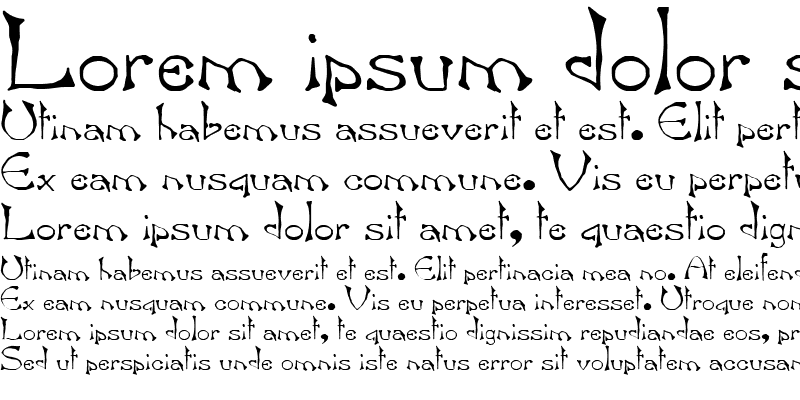 Lorem ipsum dolor s
Utinam habemus assueverit et est. Elit pert
Ex eam nusquam commune. Vis eu perpetu
Lorem ipsum dolor sit amet, te quaestio dign
Utinam habemus assueverit et est. Elit pertinacia mea no. At eleifend
Ex eam nusquam commune. Vis eu perpetua interesset. Utroque non
Lorem ipsum dolor sit amet, te quaestio dignissim repudiandae eos, pr
Sed ut perspiciatis unde omnis iste natus error sit voluptatem accusan